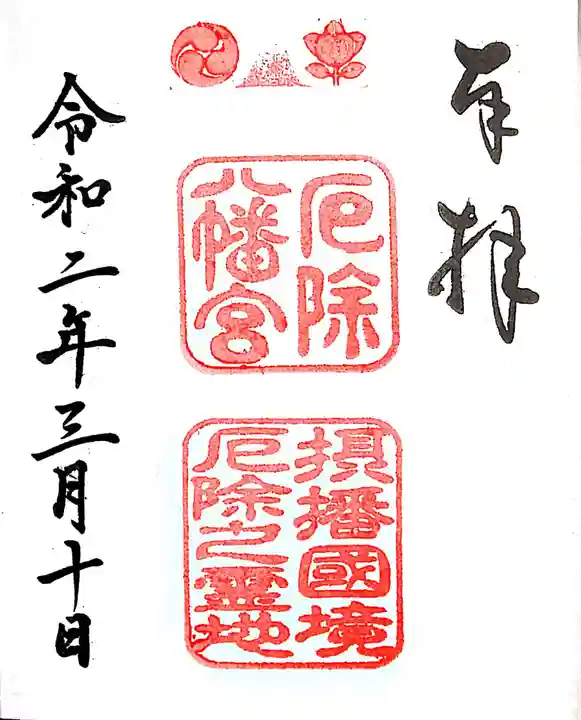 奉拝
厄除
八幡宮
摂播國境
厄除之霊地
令和二年三月十日